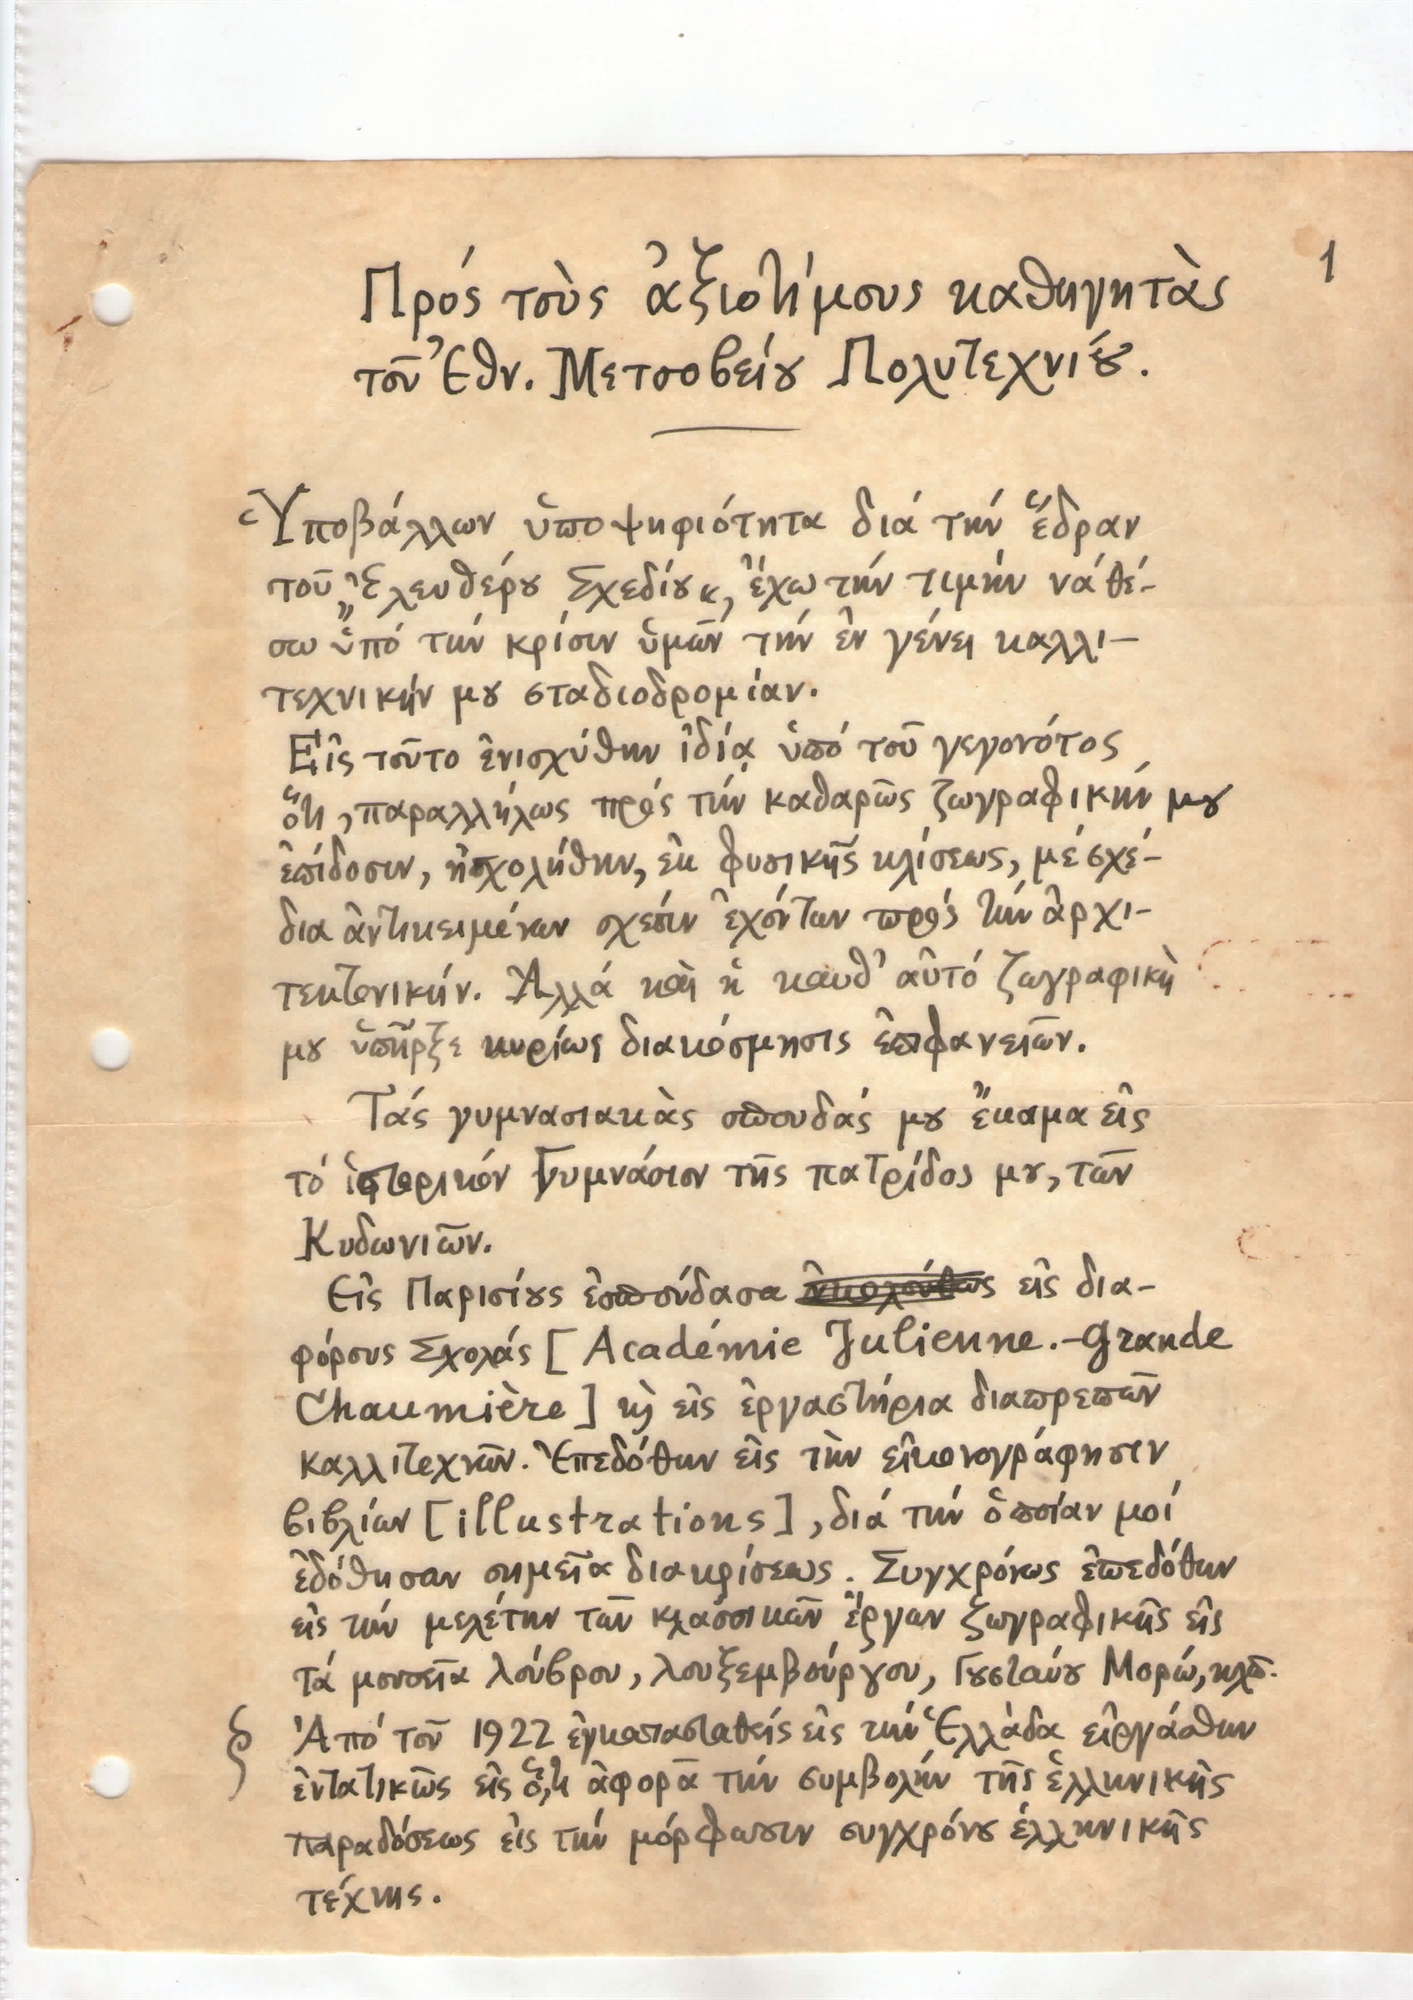 1
Πρός τοὺς ἀξιοτίμους καθηγητὰς
τοῦ Ἐθν. Μετσοβείου Πολυτεχνίου.
Ὑποβάλλων ὑποψηφιότητα διά τήν ἕδραν
τοῦ "Ἐλευθέρου Σχεδίου", ἔχω τήν τιμήν νά θέ-
σω ὑπό τήν κρίσιν ὑμῶν τήν ἐν γένει καλλι-
τεχνικήν μου σταδιοδρομίαν.
Εἰς τοῦτο ἐνισχύθην ἰδίᾳ ὑπό τοῦ γεγονότος
ὅτι, παραλλήλως πρός τήν καθαρῶς ζωγραφικήν μου
ἐπίδοσιν, ἠσχολήθην, ἐκ φυσικῆς κλίσεως, μέ σχέ-
δια ἀντικειμένων σχέσιν ἐχόντων πρός τήν ἀρχι-
τεκτονικήν. Ἀλλά καὶ ἡ καθ' αὑτό ζωγραφικὴ
μου ὑπῆρξε κυρίως διακόσμησις ἐπιφανειῶν.
Τάς γυμνασιακὰς σπουδάς μου ἔκαμα εἰς
τό ἱστορικόν Γυμνάσιον τῆς πατρίδος μου, τῶν
Κυδωνιῶν.
Εἰς Παρισίους ἐσπούδασα ἀκολούθως εἰς δια-
φόρους Σχολάς [Académie Julienne.-Grande
Chaumière] κὶ εἰς ἐργαστήρια διαπρεπῶν
καλλιτεχνῶν. Ἐπεδόθην εἰς τὴν εἰκονογράφησιν
βιβλίων [illustrations], διά τήν ὁποίαν μοί
ἐδόθησαν σημεῖα διακρίσεως. Συγχρόνως ἐπεδόθην
εἰς τήν μελέτην τῶν κλασσικῶν ἔργων ζωγραφικῆς εἰς
τά μουσεῖα Λούβρου, Λουξεμβούργου, Γουσταύου Μορώ, κλπ.
Ἀπό τοῦ 1922 ἐγκατασταθείς εἰς τήν Ἑλλάδα εἰργάσθην
ἐντατικῶς εἰς ὅ,τι ἀφορᾶ τήν συμβολήν τῆς ἑλληνικῆς
παραδόσεως εἰς τήν μόρφωσιν συγχρόνου ἑλληνικῆς
τέχνης.